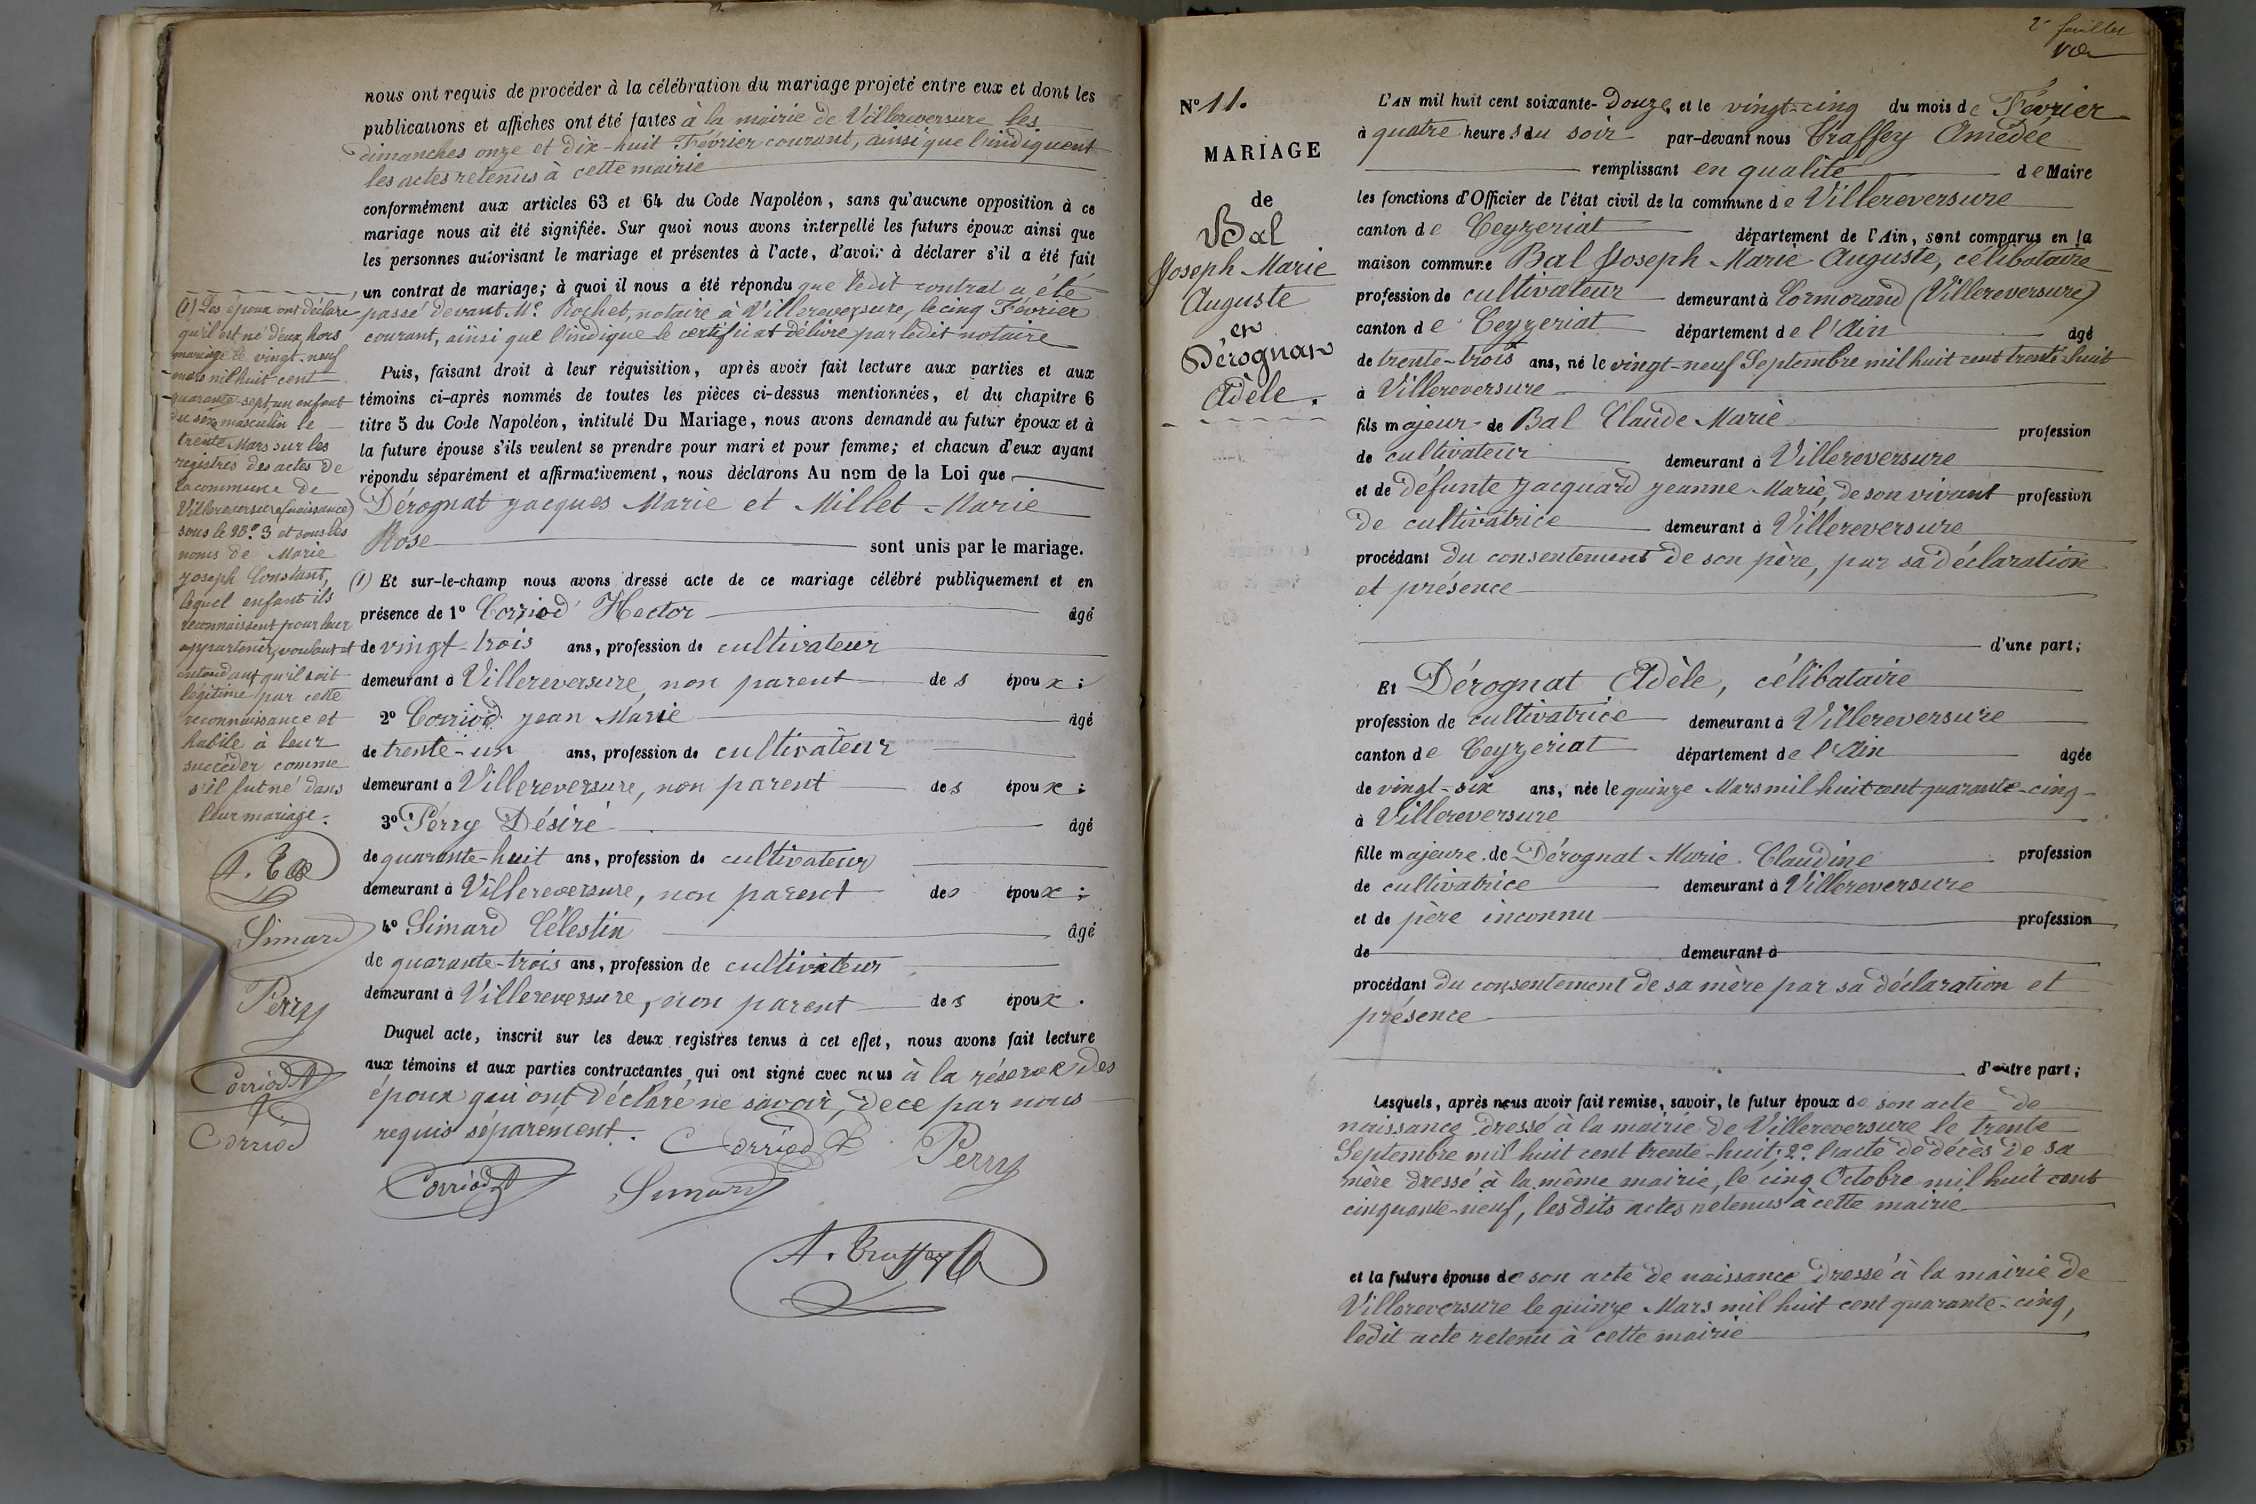 nous ont requis de procéder à la célébration du mariage projeté entre eux et dont les
publications et affiches ont été faites à la mairie de Villereversure les
dimanches onze et dix-huit Février courant, ainsi que l'indiquent
les actes retenus à cette mairie
conformément aux articles 63 et 64 du Code Napoléon, sans qu'aucune opposition à ce
mariage nous ait été signifiée. Sur quoi nous avons interpellé les futurs époux ainsi que
les personnes autorisant le mariage et présentes à l'acte, d'avoir à déclarer s'il a été fait
un contrat de mariage; à quoi il nous a été répondu que ledit contrat a été
passé devant Me Rochet, notaire à Villereversure, le cinq Février
courant, ainsi que l'indique le certificat délivré par ledit notaire
Puis, faisant droit à leur réquisition, après avoir fait lecture aux parties et aux
témoins ci-après nommés de toutes les pièces ci-dessus mentionnées, et du chapitre 6
titre 5 du Code Napoléon, intitulé Du Mariage, nous avons demandé au futur époux et à
la future épouse s'ils veulent se prendre pour mari et pour femme; et chacun d'eux ayant
répondu séparément et affirmativement, nous déclarons Au nom de la Loi que
Dérognat Jacques Marie et Millet Marie
Rose sont unis par le mariage.
(1) Et sur-le-champ nous avons dressé acte de ce mariage célébré publiquement et en
présence de 1o Corriod Hector âgé
de vingt-trois ans, profession de cultivateur
demeurant à Villereversure, non parent des époux;
2o Corriod Jean Marie âgé
de trente-un ans, profession de cultivateur
demeurant à Villereversure, non parent des époux;
3o Pérry Désiré âgé
de quarante-huit ans, profession de cultivateur
demeurant à Villereversure, non parent des époux;
4o Simard Célestin âgé
de quarante-trois ans, profession de cultivateur
demeurant à Villereversure, non parent des époux.
Duquel acte, inscrit sur les deux registres tenus à cet effet, nous avons fait lecture
aux témoins et aux parties contractantes, qui ont signé avec nous à la réserve des
époux qui ont déclaré ne savoir, de ce par nous
requis séparément. Corriod Perry
Corriod Simard
A. Traffey
(1) Les époux ont déclaré
qu'il est né d'eux, hors
mariage le vingt-neuf
mars mil huit cent
quarante-sept un enfant
du sexe masculin le
trente Mars sur les
registres des actes de
la commune de
Villereversure (naissance)
sous le No. 3 et sous les
noms de Marie
Joseph Constant,
lequel enfant ils
reconnaissent pour leur
appartenir, voulant et
entendant qu'il soit
légitimé par cette
reconnaissance et
habile à leur
succéder comme
s'il fut né dans
leur mariage.
Simard
Perry
Corriod
Corriod
2e feuillet
No 11.
MARIAGE
de
Bal
Joseph Marie
Auguste
et
Dérognat
Adèle.
L'AN mil huit cent soixante-Douze, et le vingt-cinq du mois de Février
à quatre heures du soir par-devant nous Traffey Amédée
remplissant en qualité de Maire
les fonctions d'Officier de l'état civil de la commune de Villereversure
canton de Ceyzeriat département de l'Ain, sont comparus en la
maison commune Bal Joseph Marie Auguste, célibataire
profession de cultivateur demeurant à Cormorand (Villereversure)
canton de Ceyzeriat département de l'Ain âgé
de trente-trois ans, né le vingt-neuf Septembre mil huit cent trente-huit
à Villereversure
fils majeur de Bal Claude Marie profession
de cultivateur demeurant à Villereversure
et de défunte Jacquard Jeanne Marie, de son vivant profession
de cultivatrice demeurant à Villereversure
procédant du consentement de son père, par sa déclaration
et présence
d'une part;
Et Dérognat Adèle, célibataire
profession de cultivatrice demeurant à Villereversure
canton de Ceyzeriat département de l'Ain âgée
de vingt-six ans, née le quinze Mars mil huit cent quarante-cinq
à Villereversure
fille majeure de Dérognat Marie Claudine profession
de cultivatrice demeurant à Villereversure
et de père inconnu profession
de demeurant à
procédant du consentement de sa mère par sa déclaration et
présence
d'autre part;
Lesquels, après nous avoir fait remise, savoir, le futur époux de son acte de
naissance dressé à la mairie de Villereversure le trente
Septembre mil huit cent trente-huit; 2o l'acte de décès de sa
mère dressé à la même mairie, le cinq Octobre mil huit cent
cinquante-neuf, lesdits actes retenus à cette mairie
et la future épouse de son acte de naissance dressé à la mairie de
Villereversure le quinze Mars mil huit cent quarante-cinq,
ledit acte retenu à cette mairie